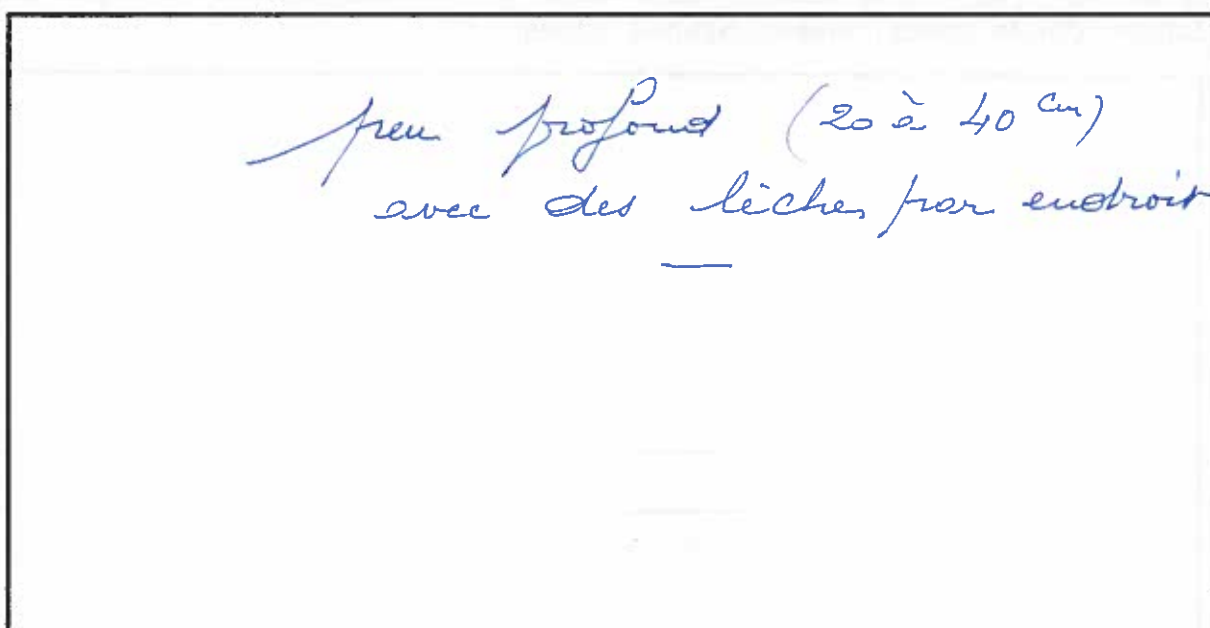 peu profond (20 à 40 cm)
avec des lèches par endroit